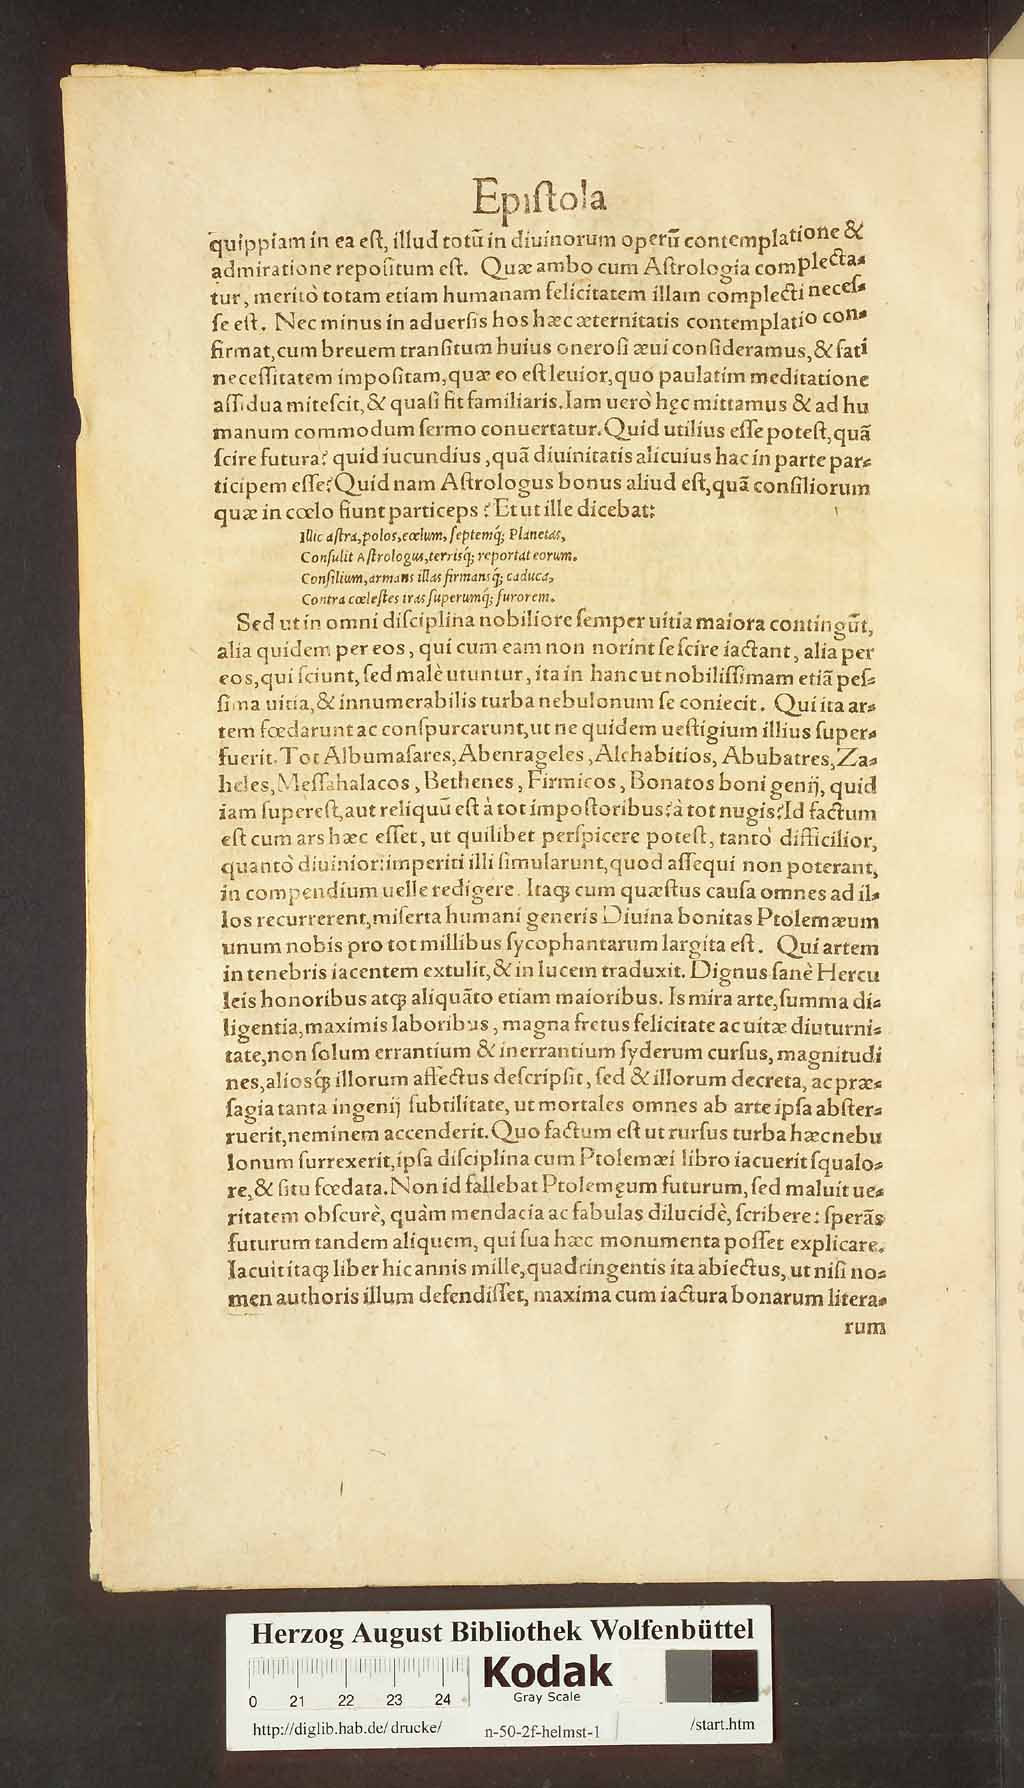 Epiſtola
quippiam in ea eſt, illud totū in diuinorum operū contemplatione &
admiratione repoſitum eſt. Quæ ambo cum Aſtrologia complecta-
tur, meritò totam etiam humanam felicitatem illam complecti neceſ-
ſe eſt. Nec minus in aduerſis hos hæc æternitatis contemplatio con-
firmat, cum breuem tranſitum huius oneroſi æui conſideramus, & fati
neceſſitatem impoſitam, quæ eo eſt leuior, quo paulatim meditatione
aſſidua miteſcit, & quaſi fit familiaris. Iam uerò hęc mittamus & ad hu
manum commodum ſermo conuertatur. Quid utilius eſſe poteſt, quã
ſcire futura? quid iucundius, quã diuinitatis alicuius hac in parte par-
ticipem eſſe? Quid nam Aſtrologus bonus aliud eſt, quã conſiliorum
quæ in cœlo fiunt particeps? Et ut ille dicebat:
Illic aſtra, polos, cœlum, ſeptemq́; Planetas,
Conſulit Aſtrologus, terrisq́; reportat eorum.
Conſilium, armans illas firmansq́; caduca,
Contra cœleſtes iras ſuperumq́; furorem.
Sed ut in omni diſciplina nobiliore ſemper uitia maiora contingūt,
alia quidem per eos, qui cum eam non norint ſe ſcire iactant, alia per
eos, qui ſciunt, ſed malè utuntur, ita in hanc ut nobiliſſimam etiã peſ-
ſima uitia, & innumerabilis turba nebulonum ſe coniecit. Qui ita ar-
tem fœdarunt ac conſpurcarunt, ut ne quidem ueſtigium illius ſuper-
fuerit. Tot Albumaſares, Abenrageles, Alchabitios, Abubatres, Za-
heles, Meſſahalacos, Bethenes, Firmicos, Bonatos boni genij, quid
iam ſupereſt, aut reliquū eſt à tot impoſtoribus? à tot nugis? Id factum
eſt cum ars hæc eſſet, ut quilibet perſpicere poteſt, tantò difficilior,
quantò diuinior: imperiti illi ſimularunt, quod aſſequi non poterant,
in compendium uelle redigere. Itaq; cum quæſtus cauſa omnes ad il-
los recurrerent, miſerta humani generis Diuina bonitas Ptolemæum
unum nobis pro tot millibus ſycophantarum largita eſt. Qui artem
in tenebris iacentem extulit, & in lucem traduxit. Dignus ſanè Hercu
leis honoribus atq; aliquãto etiam maioribus. Is mira arte, ſumma di-
ligentia, maximis laboribus, magna fretus felicitate ac uitæ diuturni-
tate, non ſolum errantium & inerrantium ſyderum curſus, magnitudi
nes, aliosq́; illorum affectus deſcripſit, ſed & illorum decreta, ac præ-
ſagia tanta ingenij ſubtilitate, ut mortales omnes ab arte ipſa abſter-
ruerit, neminem accenderit. Quo factum eſt ut rurſus turba hæc nebu
lonum ſurrexerit, ipſa diſciplina cum Ptolemæi libro iacuerit ſqualo-
re, & ſitu fœdata. Non id fallebat Ptolemęum futurum, ſed maluit ue-
ritatem obſcurè, quàm mendacia ac fabulas dilucidè, ſcribere: ſperãs
futurum tandem aliquem, qui ſua hæc monumenta poſſet explicare.
Iacuit itaq; liber hic annis mille, quadringentis ita abiectus, ut niſi no-
men authoris illum defendiſſet, maxima cum iactura bonarum litera-
rum
Herzog August Bibliothek Wolfenbüttel
0 21 22 23 24
Kodak
Gray Scale
http://diglib.hab.de/drucke/ n-50-2f-helmst-1 /start.htm